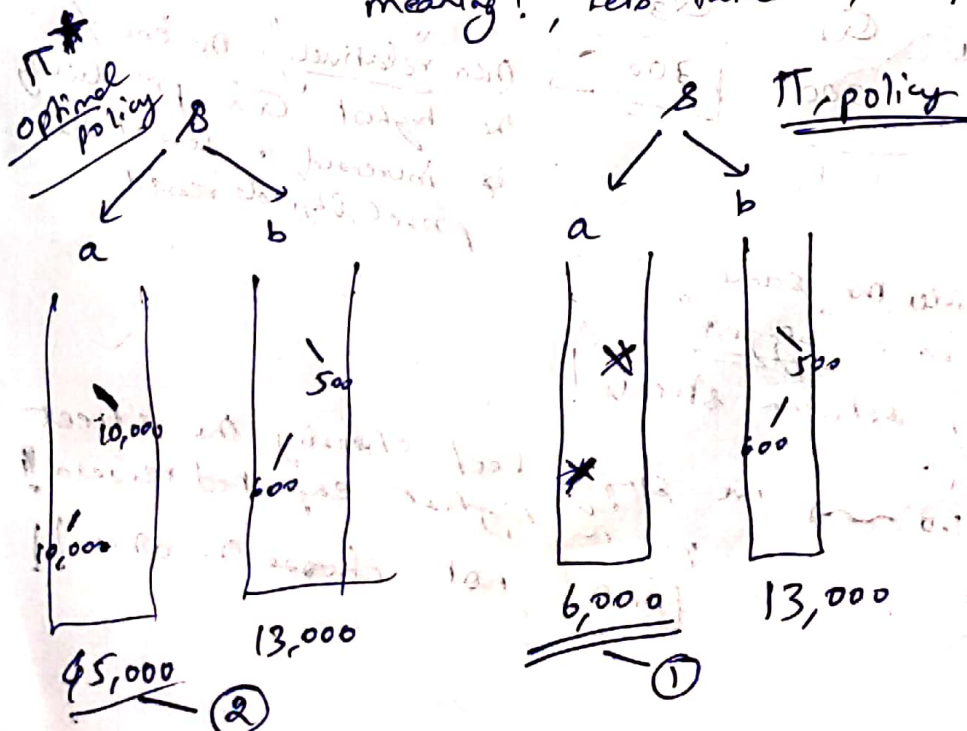 meaning!, Lets
π*
optimal
policy
s
a b
10,000
10,000
500
600
45,000
13,000
②
π, policy
s
a b
500
600
6,000
13,000
①